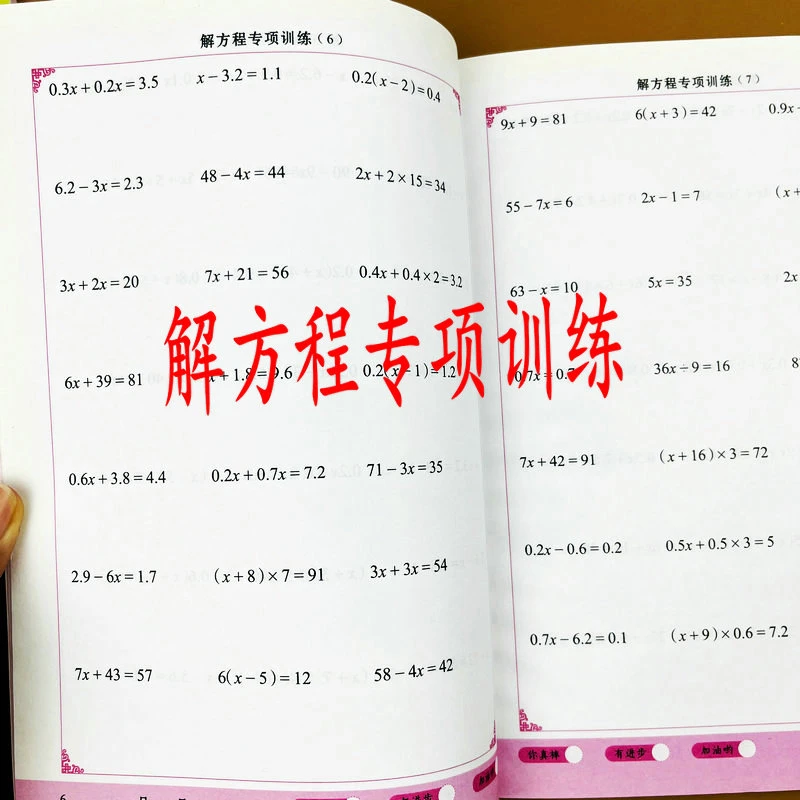 解方程专项训练(6)
0.3x+0.2x=3.5 x-3.2=1.1 0.2(x-2)=0.4
6.2-3x=2.3 48-4x=44 2x+2×15=34
3x+2x=20 7x+21=56 0.4x+0.4×2=3.2
6x+39=81 x+1.8=9.6 0.2(x-1)=1.2
0.6x+3.8=4.4 0.2x+0.7x=7.2 71-3x=35
2.9-6x=1.7 (x+8)×7=91 3x+3x=54
7x+43=57 6(x-5)=12 58-4x=42
6
解方程专项训练(7)
9x+9=81 6(x+3)=42 0.9x
55-7x=6 2x-1=7 (x+
63-x=10 5x=35 2x
0.7x=0. 36x÷9=16 8
7x+42=91 (x+16)×3=72
0.2x-0.6=0.2 0.5x+0.5×3=5
0.7x-6.2=0.1 (x+9)×0.6=7.2
你真棒 有进步 加油哟
解方程专项训练